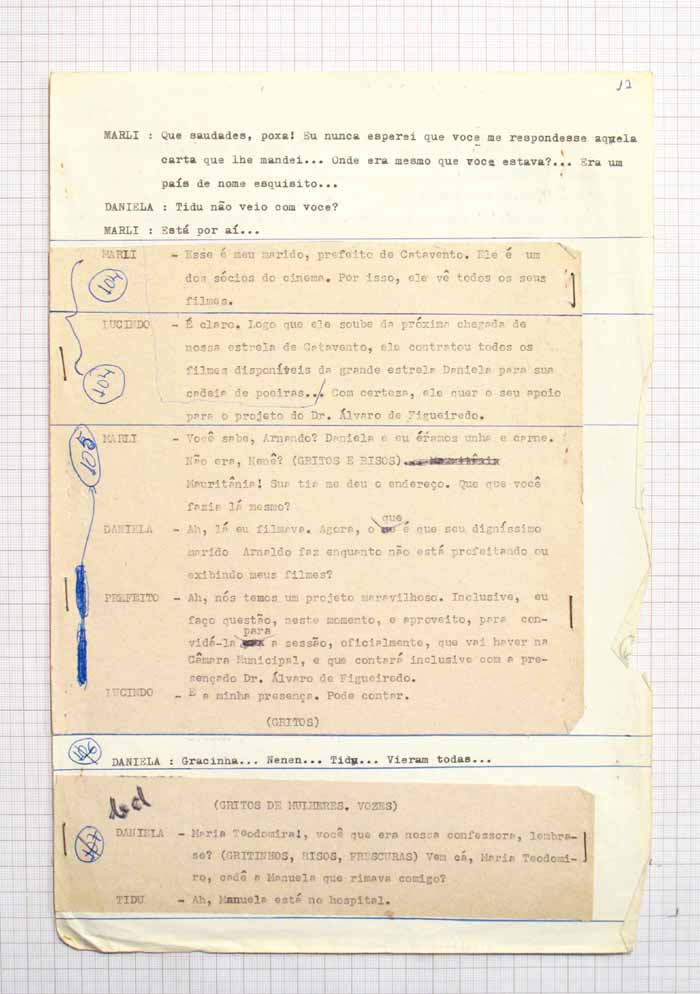 12
MARLI : Que saudades, poxa! Eu nunca esperei que voce me respondesse aquela
carta que lhe mandei... Onde era mesmo que voce estava?... Era um
país de nome esquisito...
DANIELA : Tidu não veio com voce?
MARLI : Está por aí...
MARLI - Esse é meu marido, prefeito de Catavento. Ele é um
dos sócios do cinema. Por isso, ele vê todos os seus
filmes.
104
LUCINDO - É claro. Logo que ele soube da próxima chegada de
nossa estrela de Catavento, ele contratou todos os
filmes disponíveis da grande estrela Daniela para sua
104
cadeia de poeiras... Com certeza, ele quer o seu apoio
para o projeto do Dr. Álvaro de Figueiredo.
MARLI - Você sabe, Arnando? Daniela e eu éramos unha e carne.
105
Não era, Nenê? (GRITOS E RISOS)
Mauritânia! Sua tia me deu o endereço. Que que você
fazia lá mesmo?
que
DANIELA - Ah, lá eu filmava. Agora, o é que seu digníssimo
marido Arnaldo faz enquanto não está prefeitando ou
exibindo meus filmes?
PREFEITO - Ah, nós temos um projeto maravilhoso. Inclusive, eu
faço questão, neste momento, e aproveito, para con-
para
vidá-la a sessão, oficialmente, que vai haver na
Câmara Municipal, e que contará inclusive com a pre-
sençado Dr. Álvaro de Figueiredo.
LUCINDO - E a minha presença. Pode contar.
(GRITOS)
DANIELA : Gracinha... Nenen... Tidu... Vieram todas...
(GRITOS DE MULHERES. VOZES)
DANIELA - Maria Teodomira!, você que era nossa confessora, lembra-
se? (GRITINHOS, RISOS, FRESCURAS) Vem cá, Maria Teodomi-
ro, cadê a Manuela que rimava comigo?
TIDU - Ah, Manuela está no hospital.